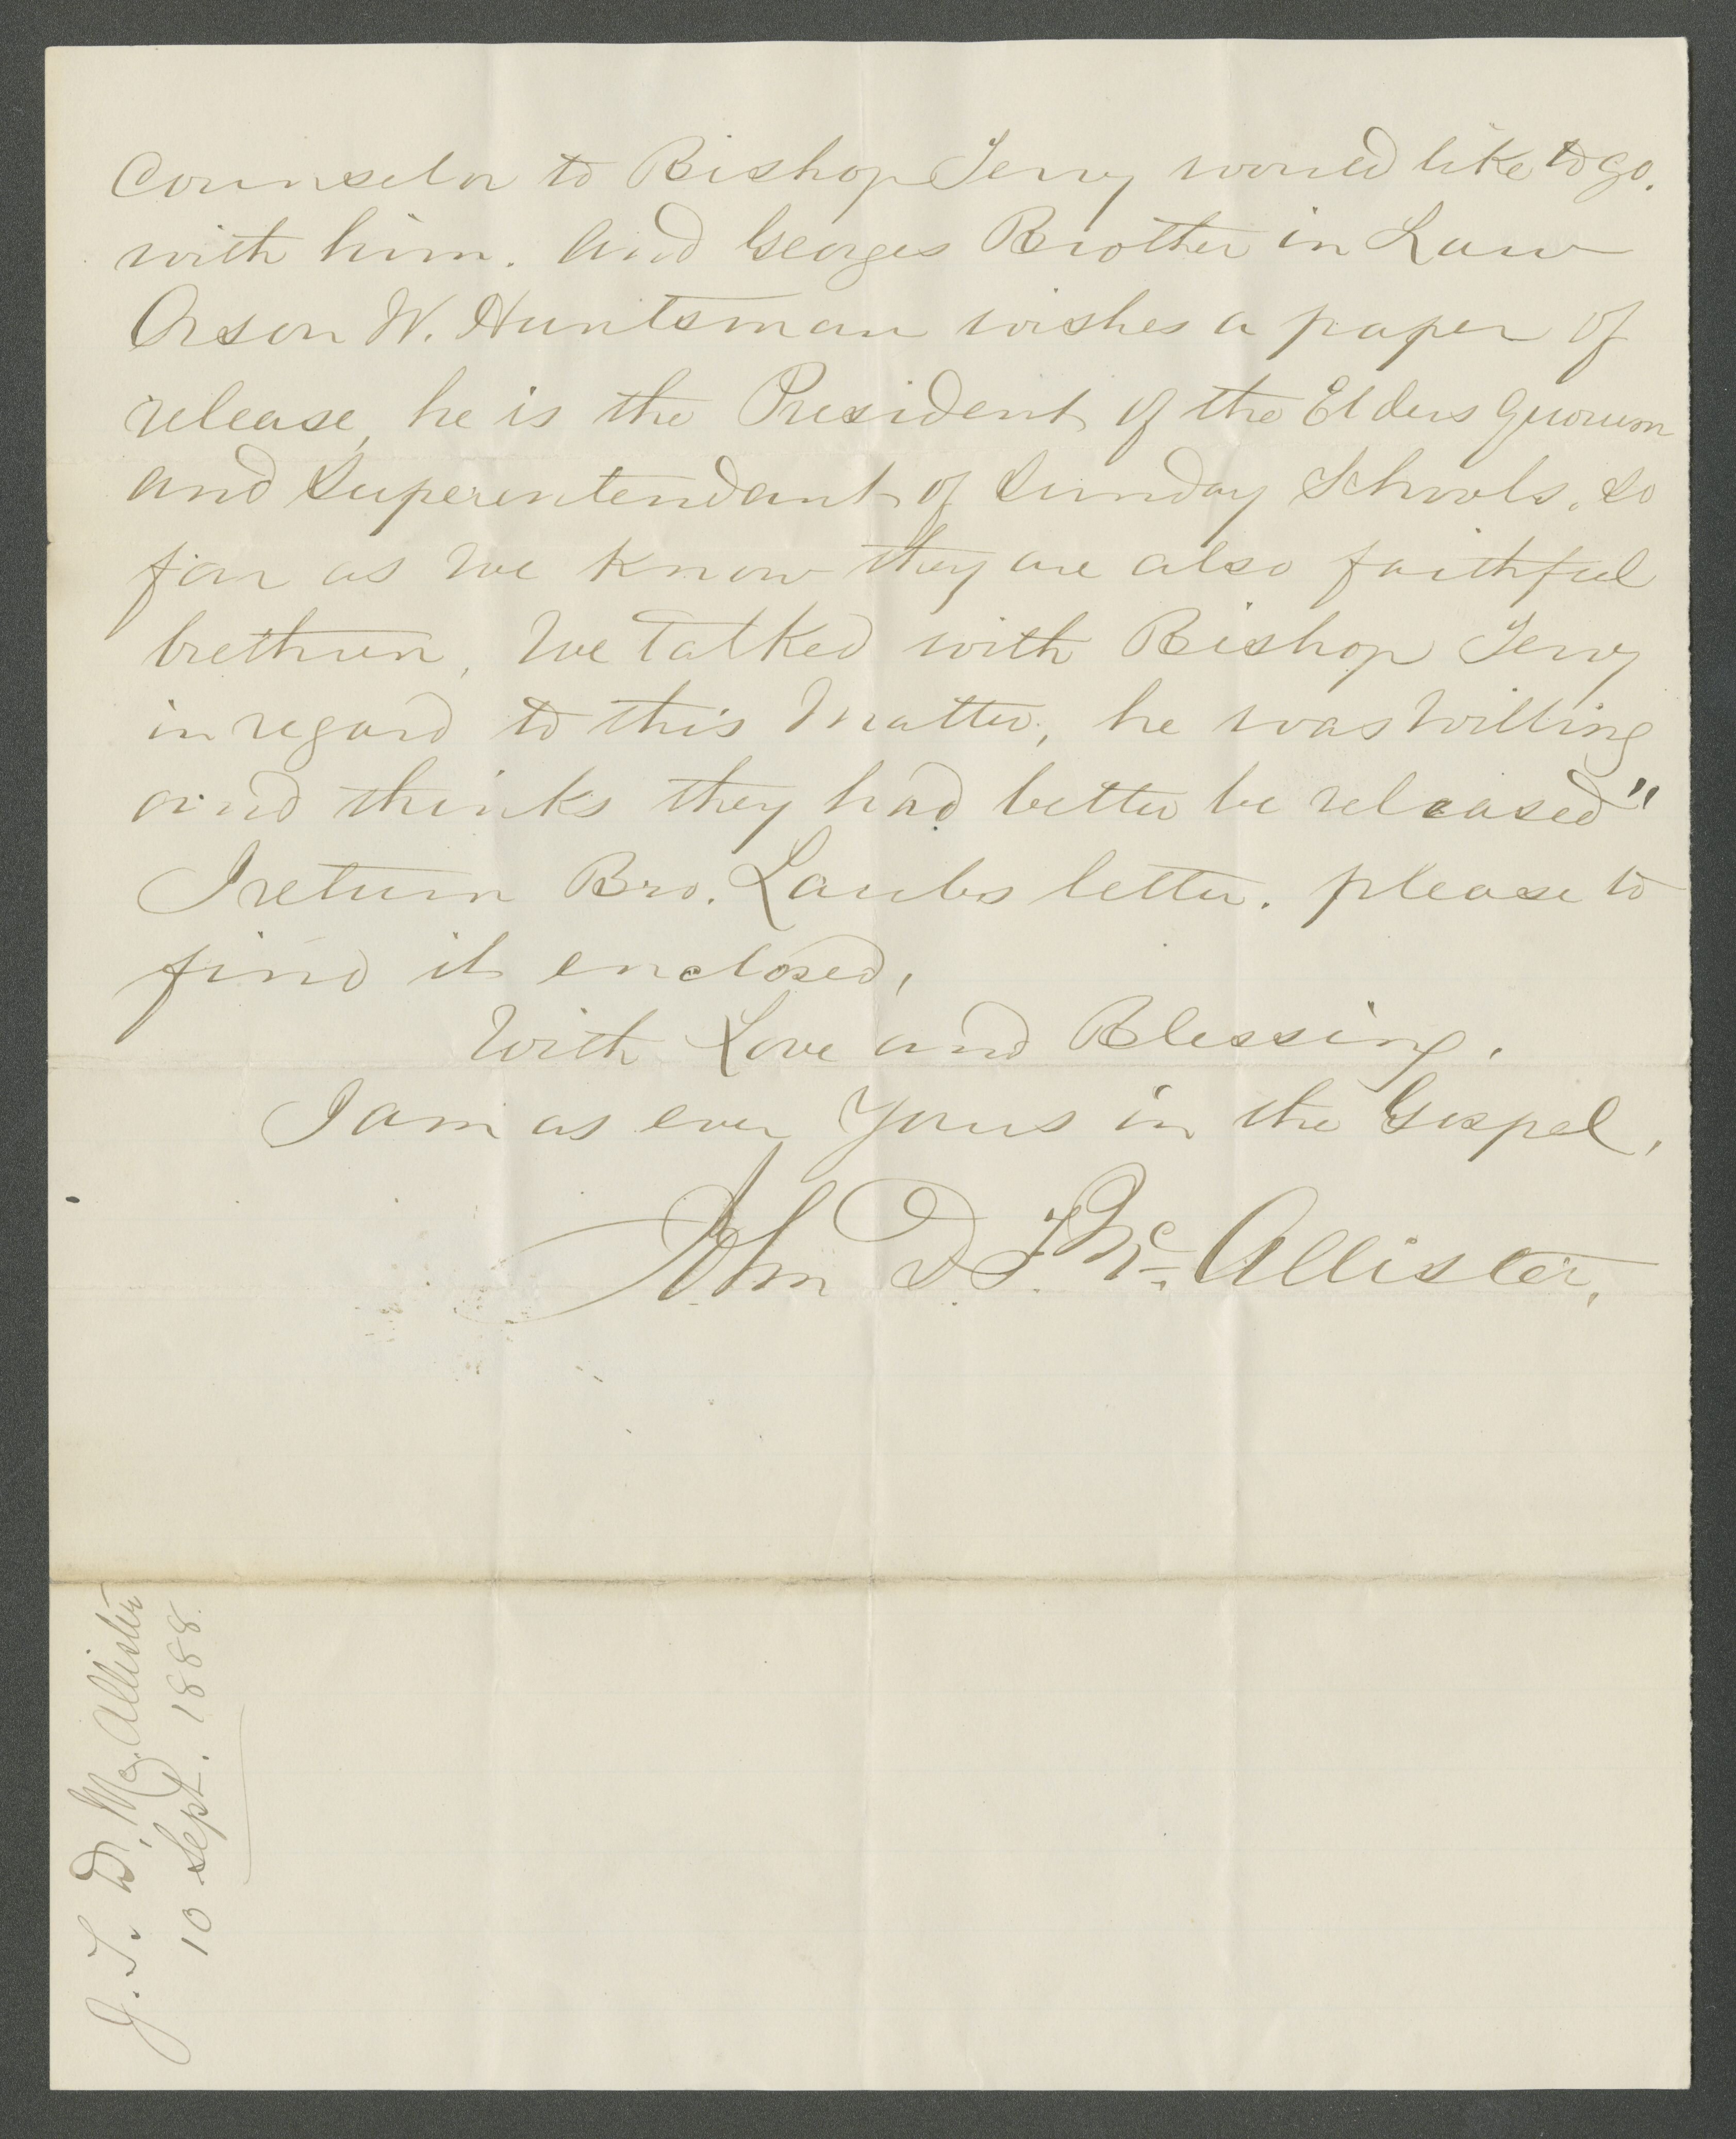 Counselor to Bishop Terry would like to go.
with him. And Georges Brother in Law
Orson W. Huntsman wishes a paper of
release, he is the President of the Elders Quorum
and Superentendant of Sunday Schools, so
far as we know they are also faithful
brethren, We talked with Bishop Terry
in regard to this matter, he was willing
and thinks they had better be released"
I return Bro. Laubs letter. please to
find it enclosed,
With Love and Blessing,
I am as ever Yours in the Gospel,
John D. T. McAllister,
J. T. D. McAllister
10 Sept. 1888.